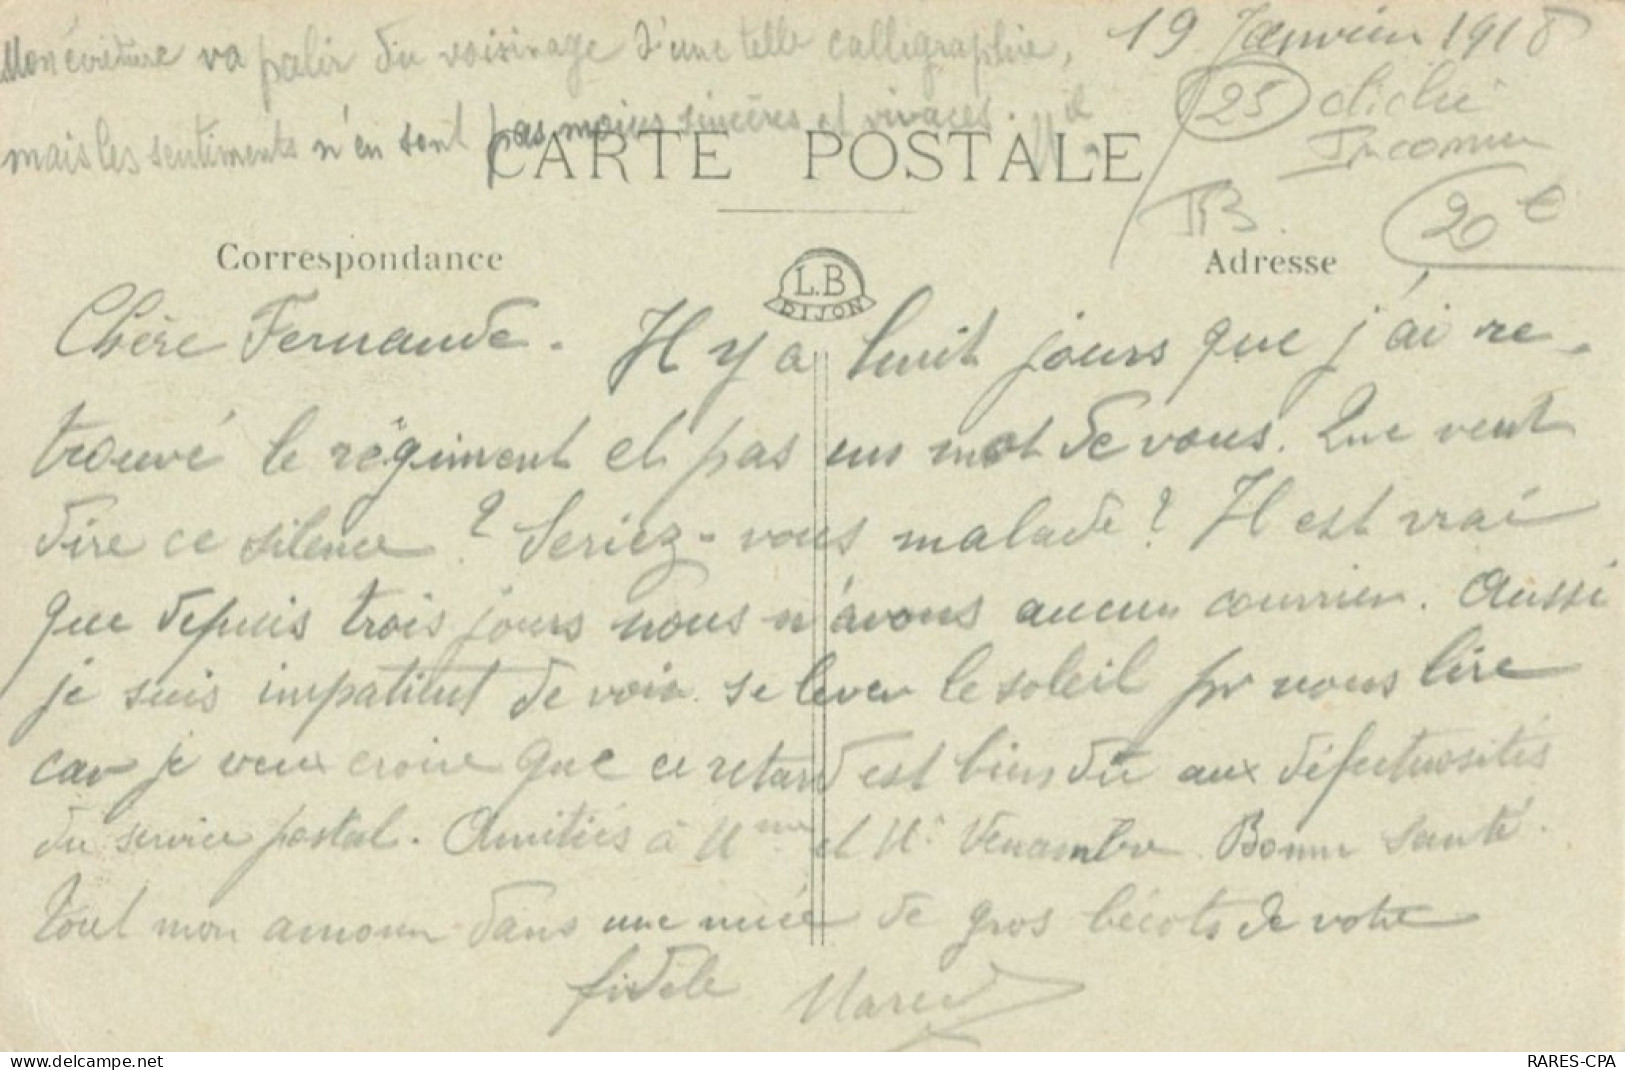 Mon écriture va palir du voisinage d'une telle calligraphie,
mais les sentiments n'en sont pas moins sincères et vivaces.
19 Janvier 1918
25 cliché
Inconnu
TB
20 €
CARTE POSTALE
Correspondance
L.B
DIJON
Adresse
Chère Fernande. Il y a huit jours que j'ai re-
trouvé le régiment et pas un mot de vous. Que veut
dire ce silence ? Seriez-vous malade ? Il est vrai
que depuis trois jours nous n'avons aucun courrier. Aussi
je suis impatient de voir se lever le soleil pr vous lire
car je veux croire que ce retard est bien dû aux défectuosités
du service postal. Amitiés à Mme et Mr Bonne Santé.
Tout mon amour dans une nuée de gros bécots de votre
fidèle Marcel
delcampe.net
RARES-CPA